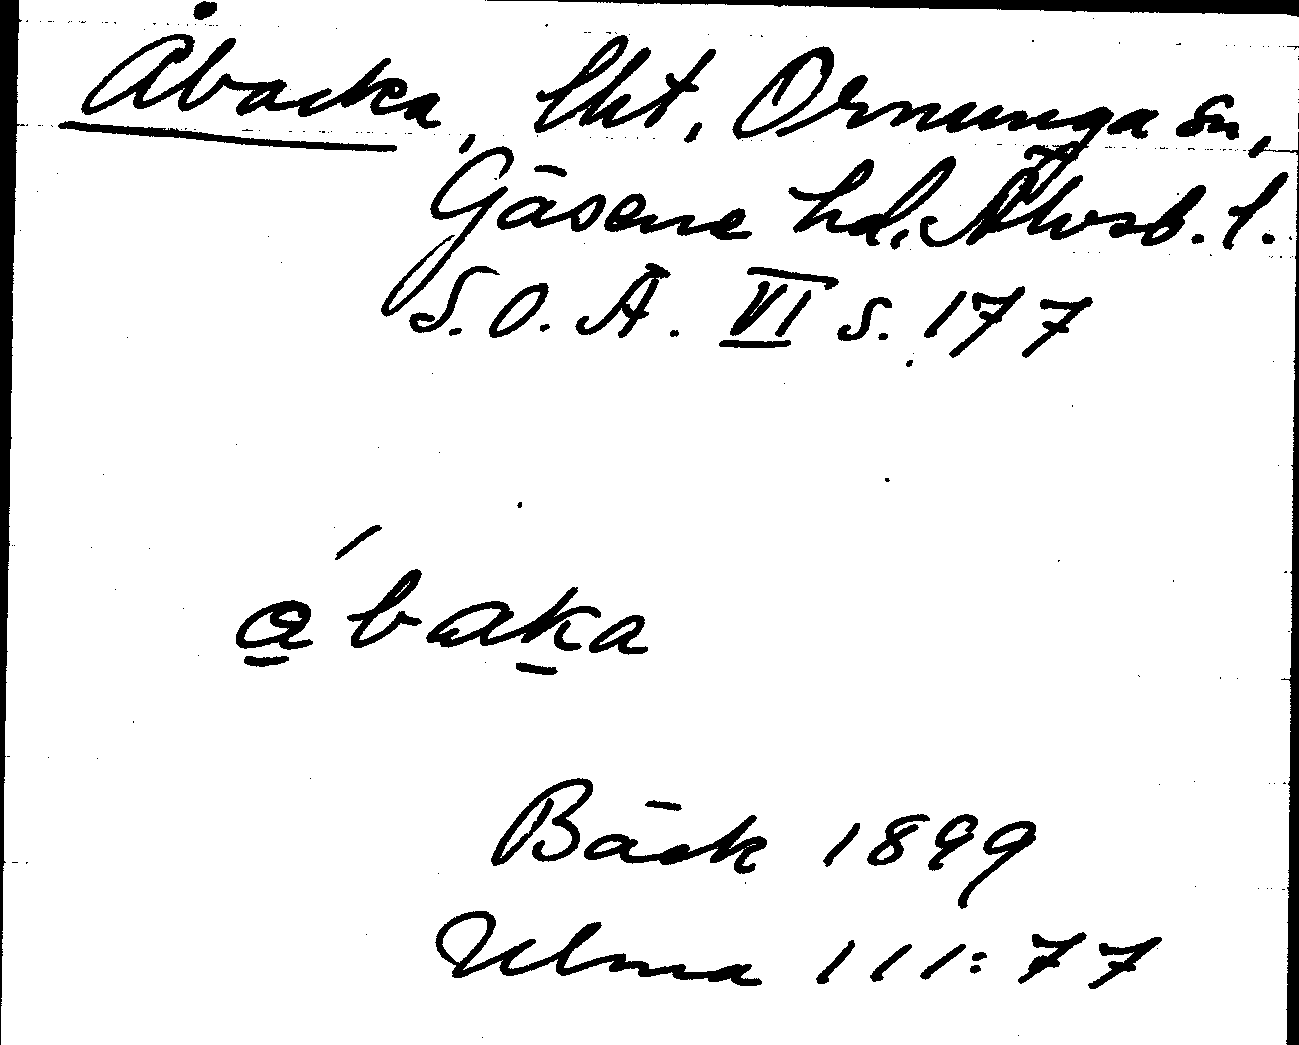 Åbacka, lht, Ornunga sn,
Gäsene hd, Älvsb. l.
S.O.Ä. VI s. 177
a̱´baḵa
Bäck 1899
Ulma 111:77